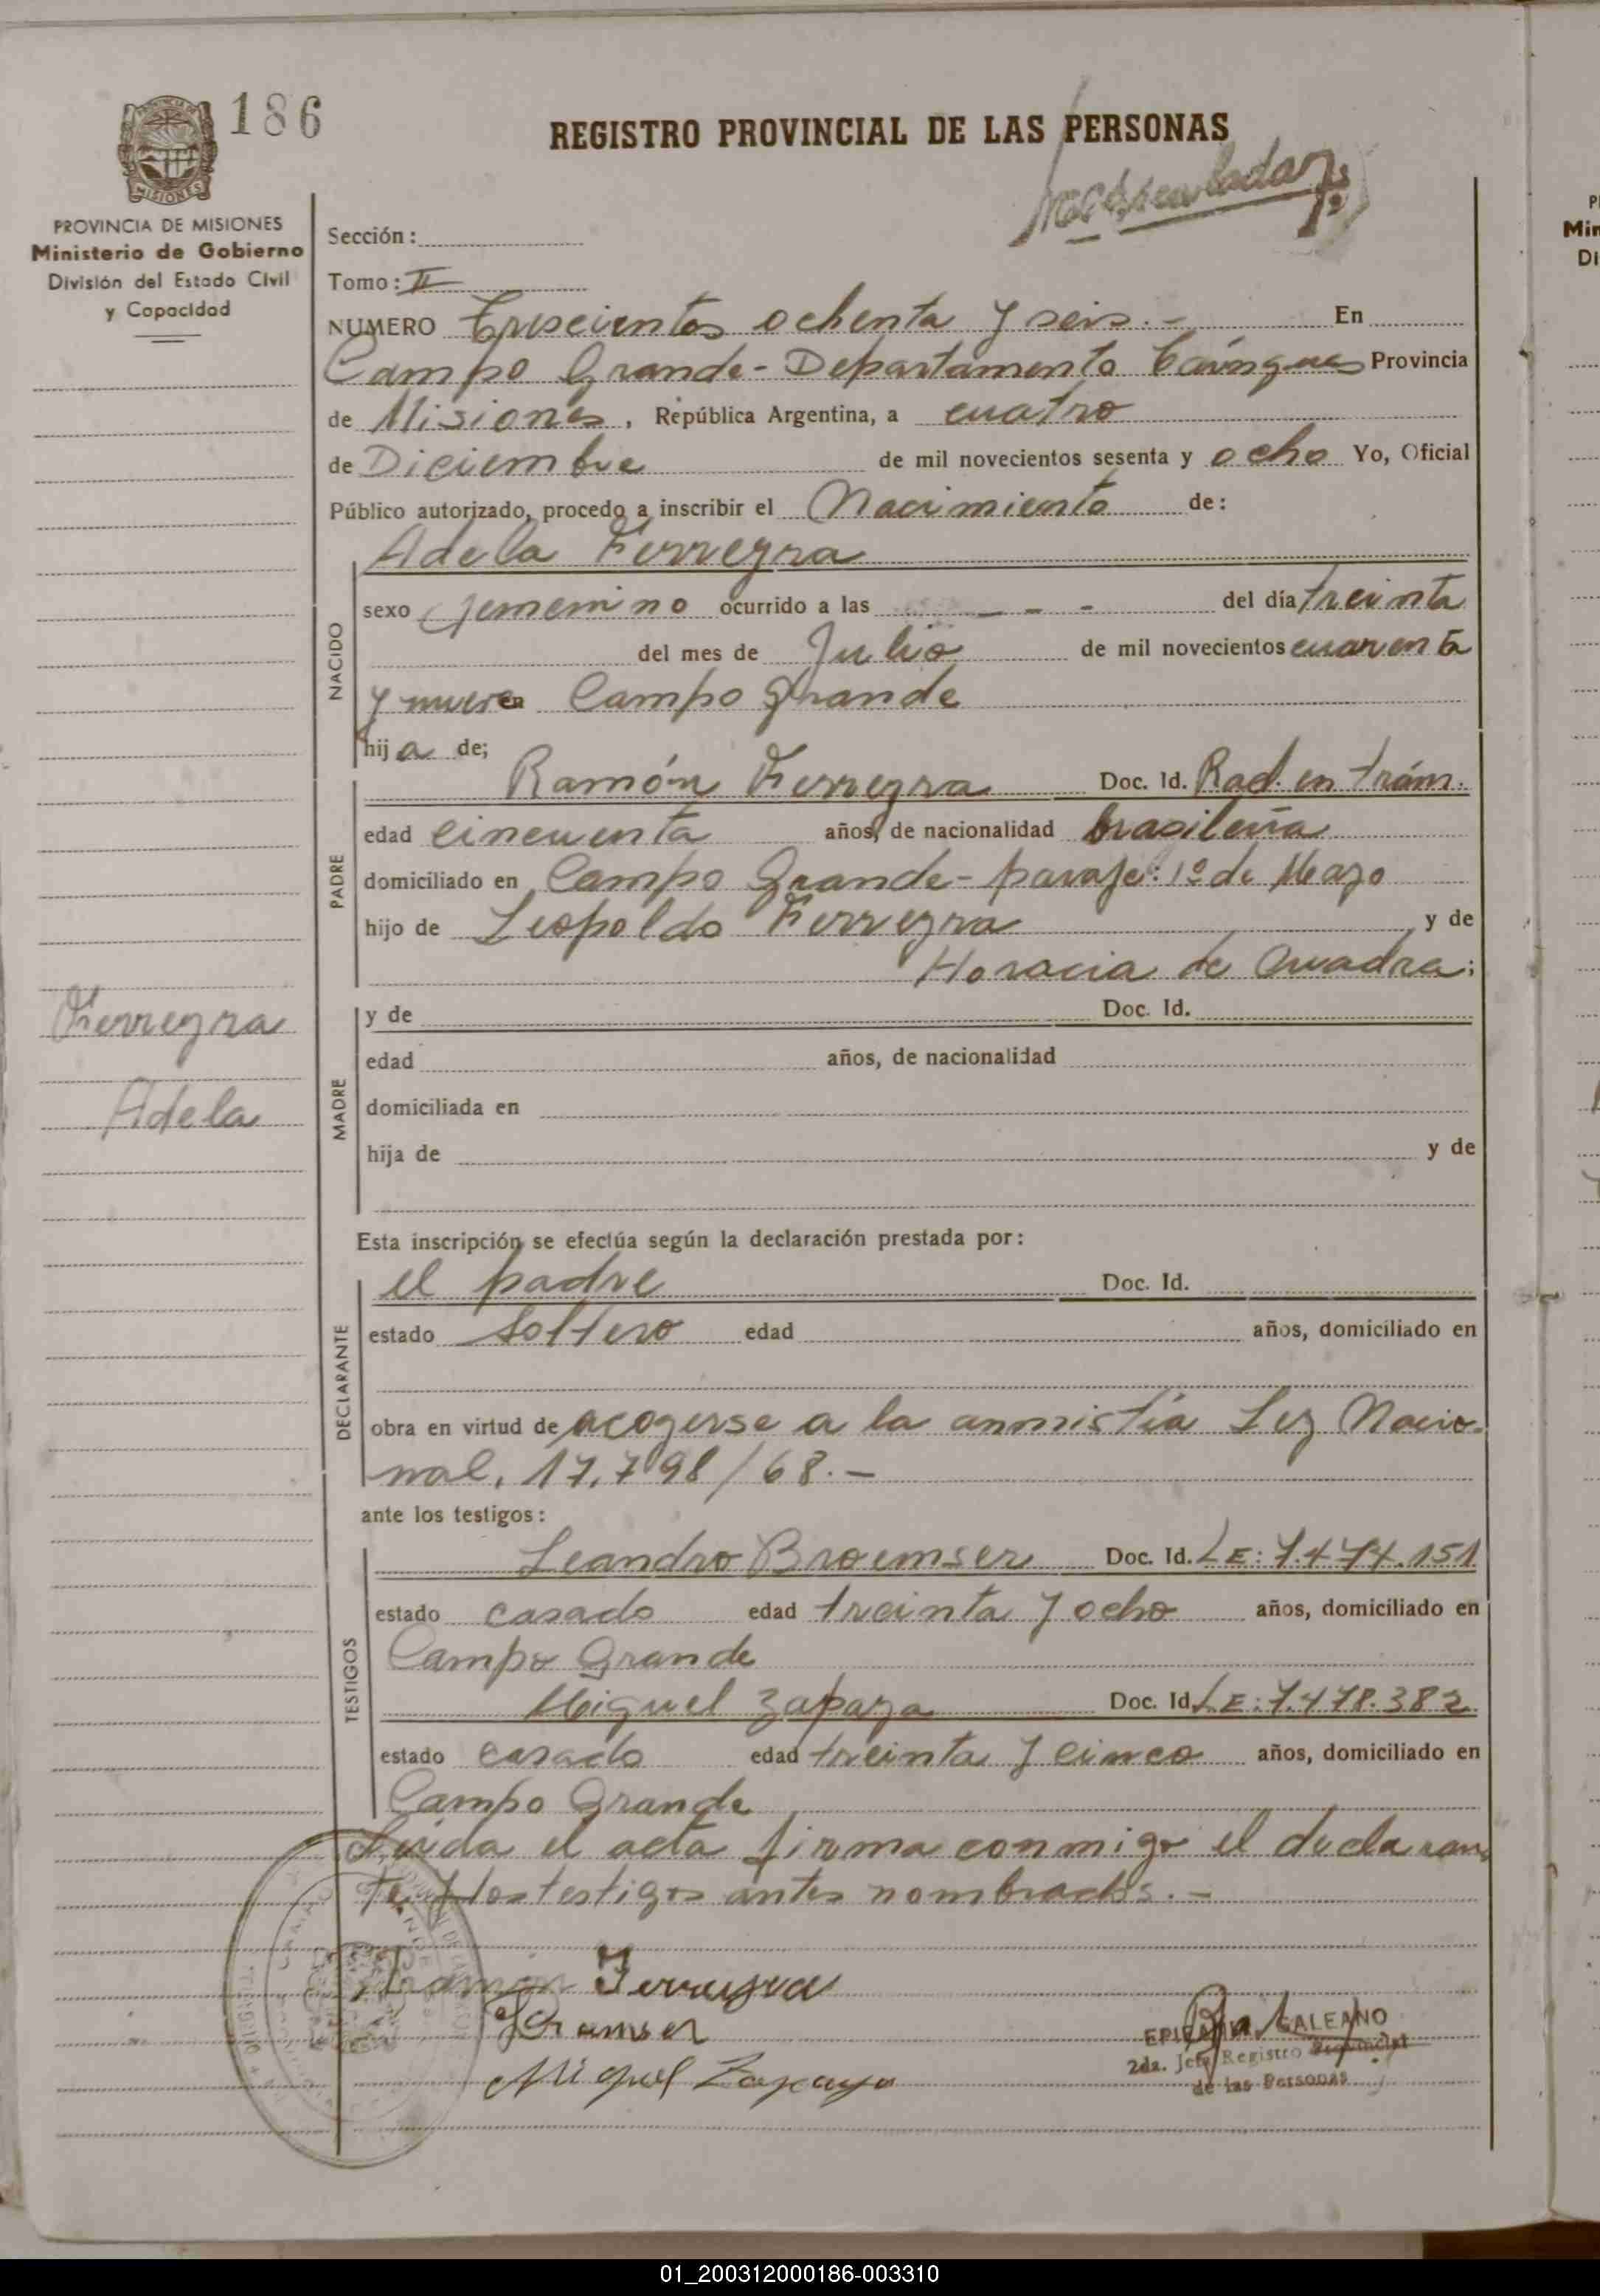 186
REGISTRO PROVINCIAL DE LAS PERSONAS
MISIONES
PROVINCIA DE MISIONES
Ministerio de Gobierno
División del Estado Civil
y Capacidad
Sección:
Tomo: II
NUMERO Trescientos ochenta y seis.- En
Campo Grande - Departamento Cainguas Provincia
de Misiones, República Argentina, a cuatro
de Diciembre de mil novecientos sesenta y ocho Yo, Oficial
Público autorizado, procedo a inscribir el Nacimiento de:
Adela Ferreyra
NACIDO
sexo femenino ocurrido a las - - - del día treinta
del mes de Julio de mil novecientos cuarenta
y nueve en Campo Grande
hija de;
PADRE
Ramón Ferreyra Doc. Id. Rad. en trám.
edad cincuenta años, de nacionalidad brasileña
domiciliado en Campo Grande - paraje: 1º de Mayo
hijo de Leopoldo Ferreyra y de
Horacia de Quadra;
Ferreyra
Adela
MADRE
y de Doc. Id.
edad años, de nacionalidad
domiciliada en
hija de y de
Esta inscripción se efectúa según la declaración prestada por:
DECLARANTE
el padre Doc. Id.
estado soltero edad años, domiciliado en
obra en virtud de acogerse a la amnistía Ley Nacio-
nal, 17.798/68.-
ante los testigos:
TESTIGOS
Leandro Broemser Doc. Id. LE: 7.474.151
estado casado edad treinta y ocho años, domiciliado en
Campo Grande
Miguel Zapaya Doc. Id. LE: 7.478.382
estado casado edad treinta y cinco años, domiciliado en
Campo Grande
Leida el acta firma conmigo el declaran-
te y los testigos antes nombrados.-
Ramón Ferreyra
Miguel Zapaya
GALEANO
2da. Jefe Registro Provincial
de las Personas
01_200312000186-003310